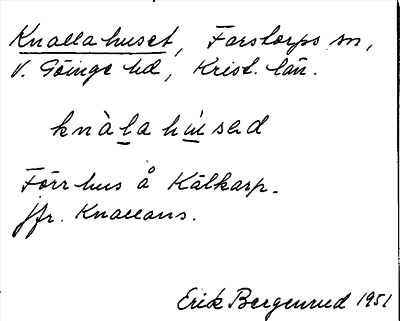 Knallahuset, Farstorps sn,
V. Göinge hd, Krist. län.
knàla hu̇səd
Förr hus å Kälkarp.
Jfr. Knallans.
Erik Bergenrud 1951